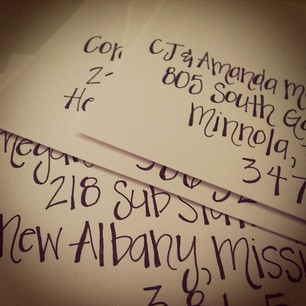 Con
2
He
CJ & Amanda M
805 South
Minnola,
347
Mega
218 Sub
New Albany, Missi
38